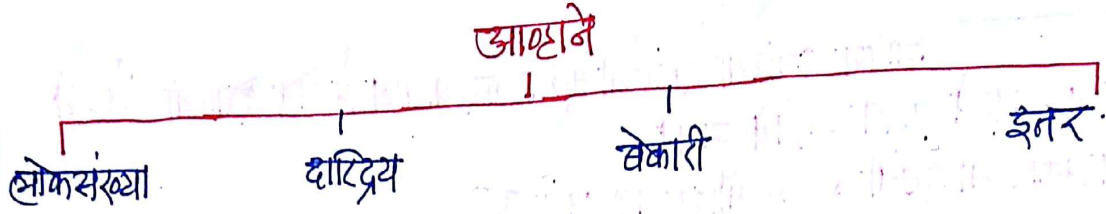 आव्हाने
लोकसंख्या दारिद्रय बेकारी इतर.